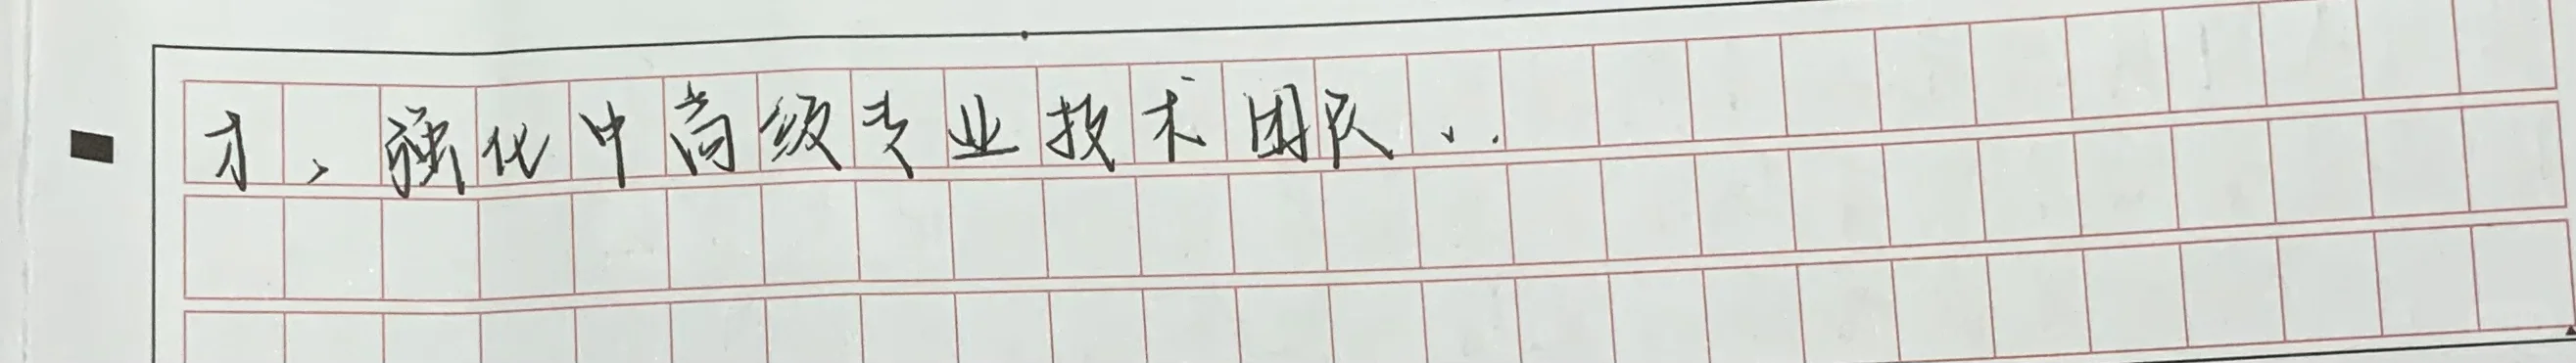 才、强化中高级专业技术团队、.